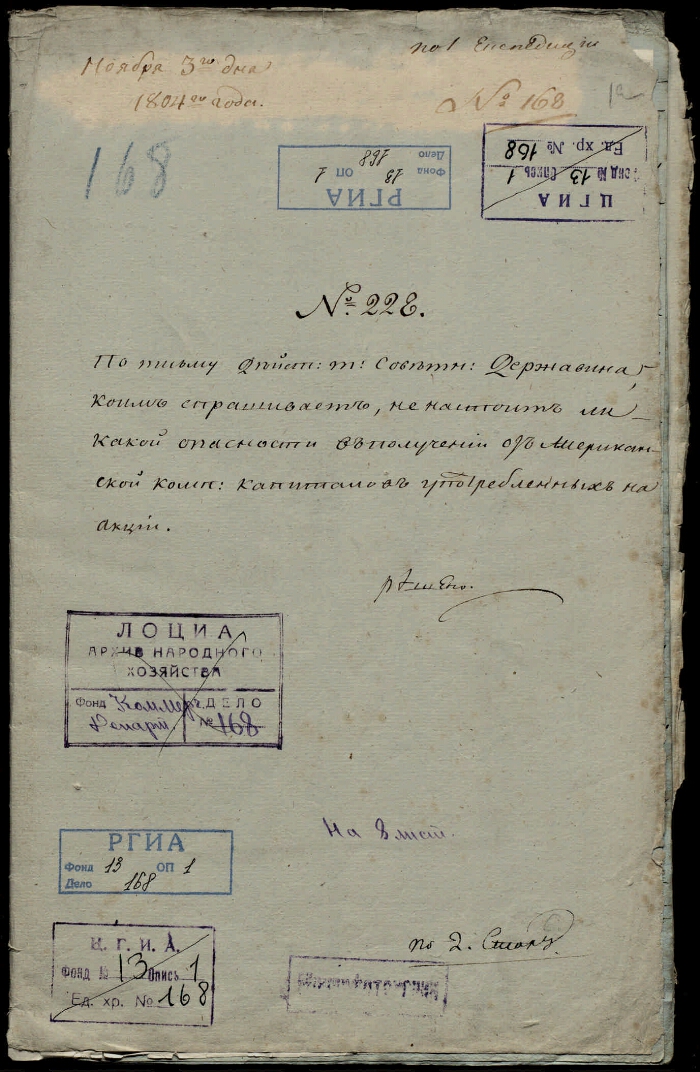 Ноября 3го дня
1804го года.
по 1 Експедиціи
№ 168
168
РГИА
Фонд 18 ОП 1
Дело 168
ЦГИА
Фонд № 13 Опись 1
Ед. хр. № 168
№ 228.
По письму Дѣйст: т: Совѣтн: Державина,
коимъ спрашиваетъ, не настоитъ ли
какой опасности въ полученіи отъ Американ-
ской комп: капиталовъ употребленныхъ на
акціи.
рѣшено.
ЛОЦИА
АРХИВ НАРОДНОГО
ХОЗЯЙСТВА
Фонд Коммер. ДЕЛО
Департ. № 168
На 8 лист.
РГИА
Фонд 13 ОП 1
Дело 168
по 2. Столу
Ц. Г. И. А.
Фонд № 13 Опись 1
Ед. хр. № 168